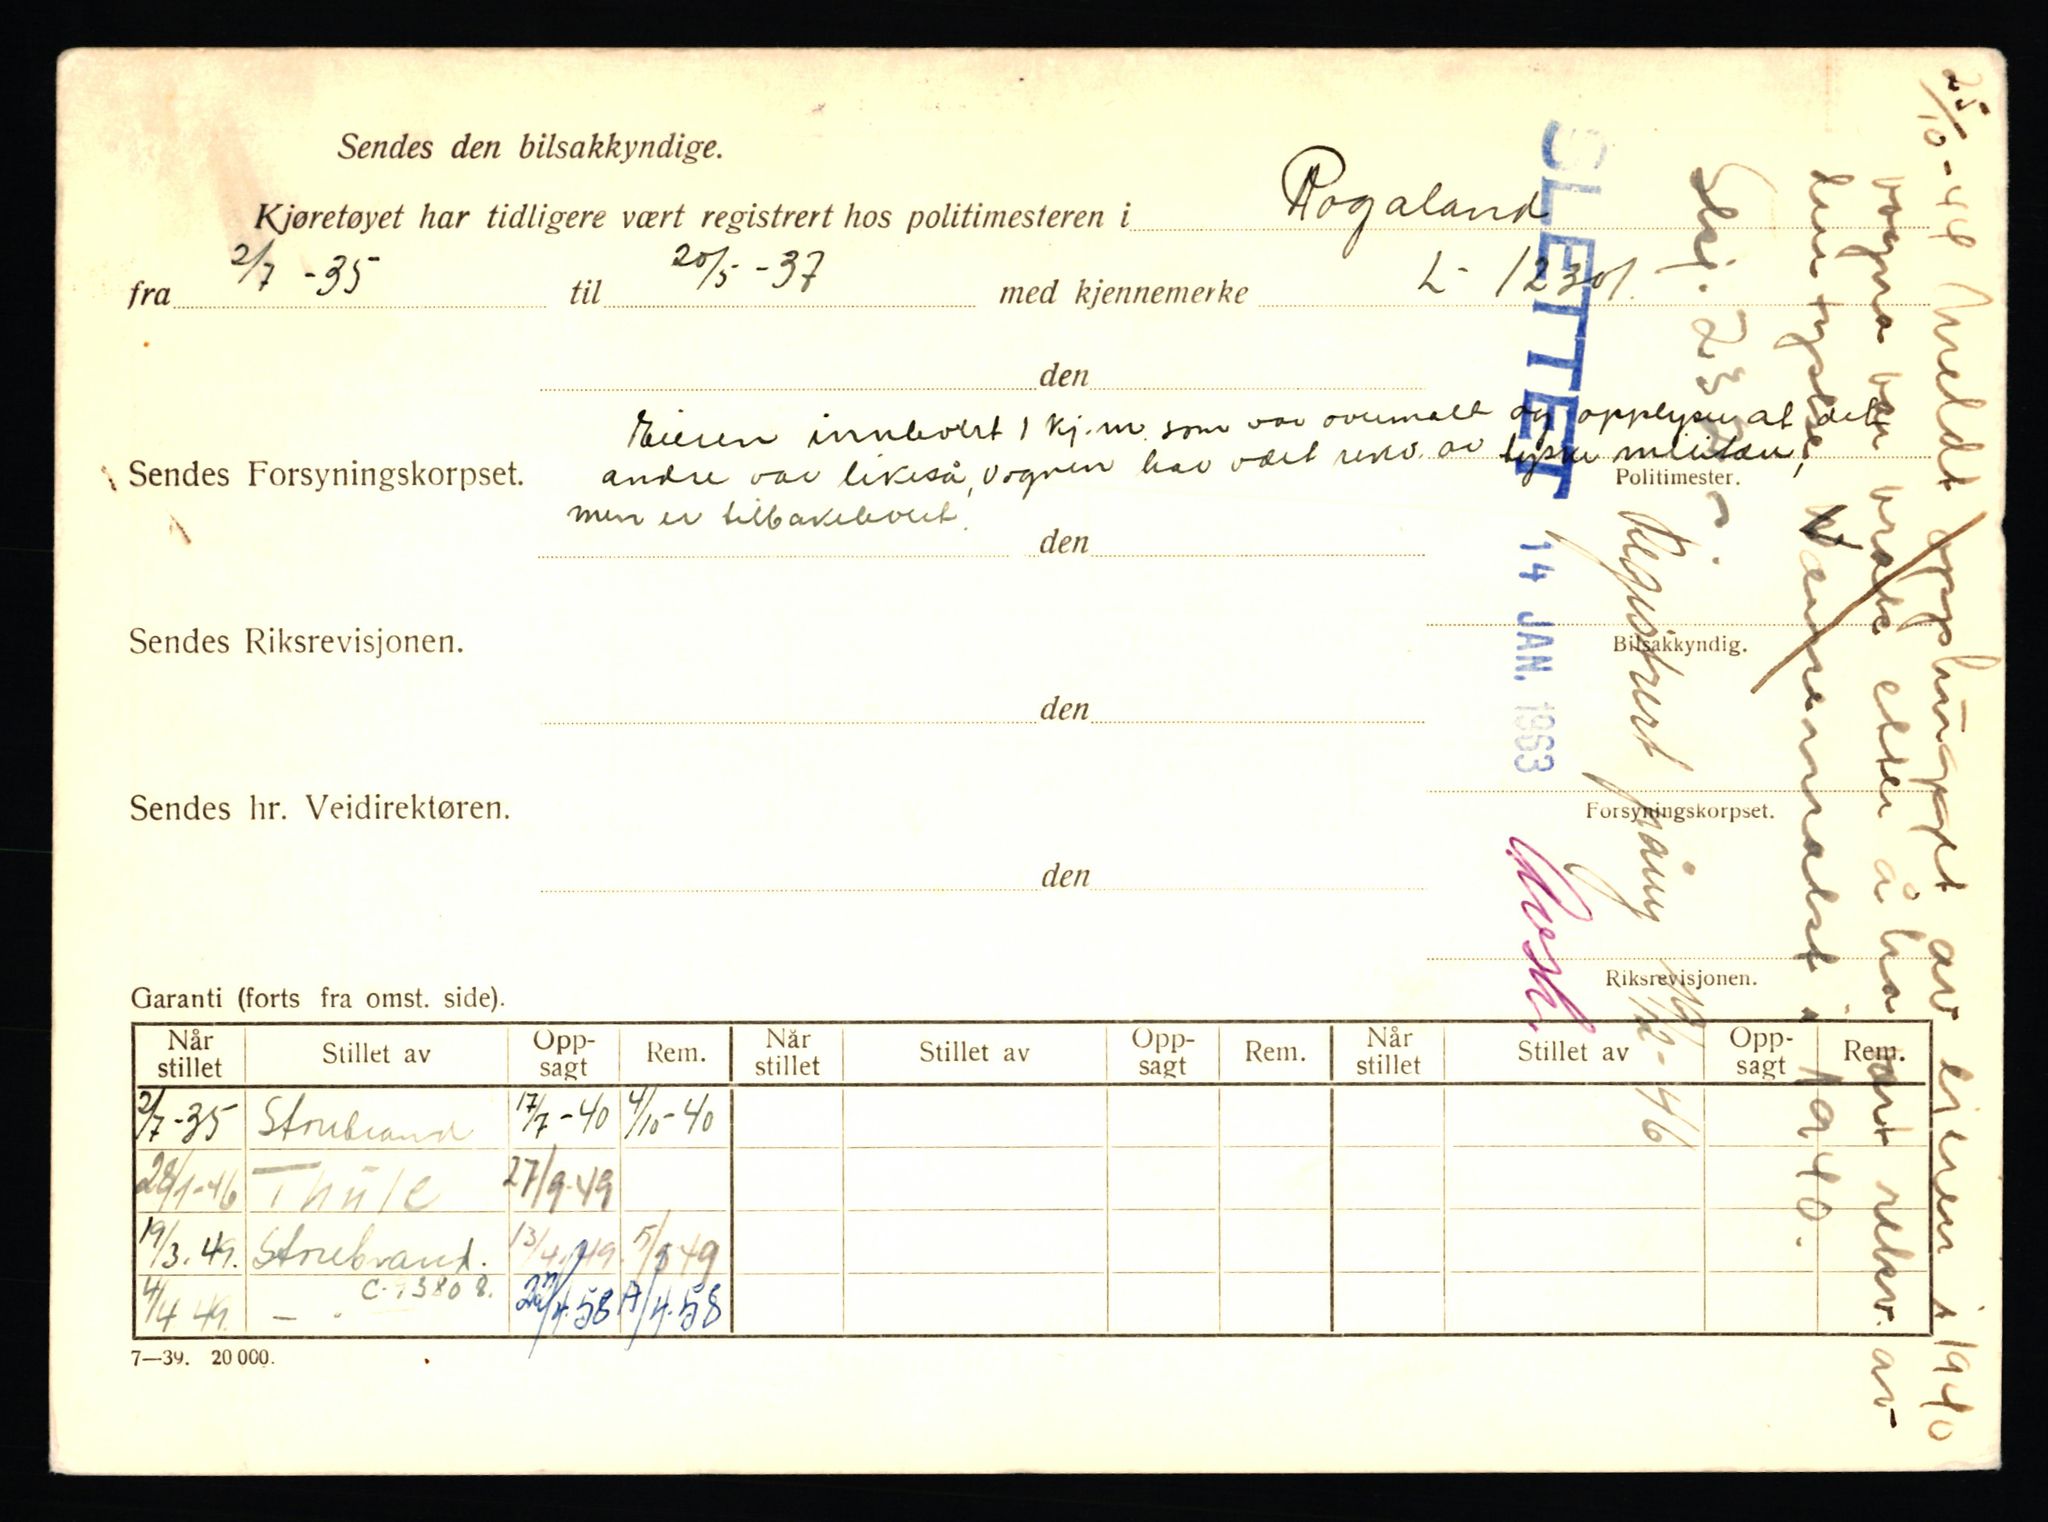 Sendes den bilsakkyndige.
Kjøretøyet har tidligere vært registrert hos politimesteren i Rogaland
fra 2/7 -35 til 20/5 -37 med kjennemerke L- 12301.
den
Eieren innlevert 1 kj.m. som var overmalt og opplyser at det
Sendes Forsyningskorpset.
andre var likeså, vognen har vært rekv. av tyske militær,
Politimester.
men er tilbakelevert.
den
Sendes Riksrevisjonen.
Bilsakkyndig.
den
Sendes hr. Veidirektøren.
Forsyningskorpset.
den
Riksrevisjonen.
Garanti (forts fra omst. side).
Når stillet Stillet av Opp-sagt Rem. Når stillet Stillet av Opp-sagt Rem. Når stillet Stillet av Opp-sagt Rem.
2/7 -35 Storebrand 17/7 -40 4/10 -40
28/1 -46 Thule 27/9-49
19/3. 49. Storebrand. 13/4. 49. 5/ 49
4/4 49. — " — C-13808. /4.58 /4.58
7—39. 20 000.
SLETTET 14 JAN. 1963
Registrert påny 19/12-46
25/10-44 Meldt opphugget av eieren i 1940
vogna var vrak etter å ha vært rekv. av
den tyske i 1940.